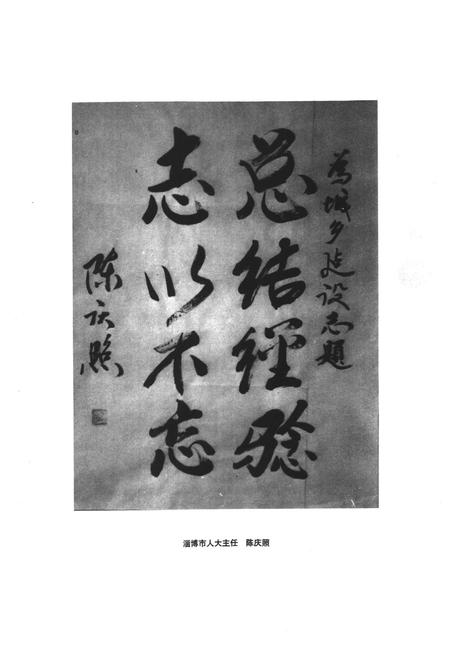 为城乡建设志題
总结經驗
志以不忘
陈庆照
淄博市人大主任 陈庆照